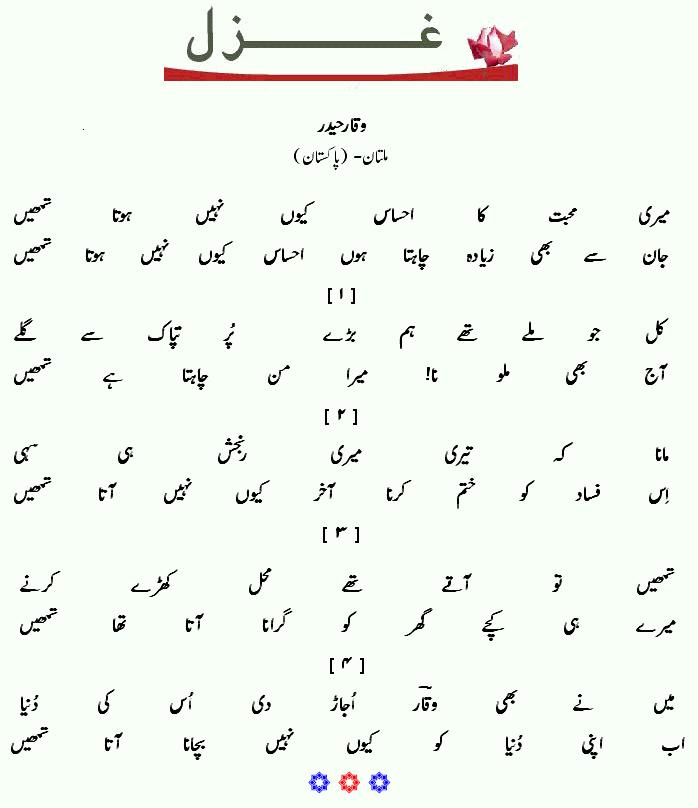 غزل
وقار حیدر
ملتان- (پاکستان)
میری محبت کا احساس کیوں نہیں ہوتا تمھیں
جان سے بھی زیادہ چاہتا ہوں احساس کیوں نہیں ہوتا تمھیں
[ ۱ ]
کل جو ملے تھے ہم بڑے پُر تپاک سے گلے
آج بھی ملو نا! میرا من چاہتا ہے تمھیں
[ ۲ ]
مانا کہ تیری میری رنجش ہی سہی
اِس فساد کو ختم کرنا آخر کیوں نہیں آتا تمھیں
[ ۳ ]
تمھیں تو آتے تھے محل کھڑے کرنے
میرے ہی کچے گھر کو گرانا آتا تھا تمھیں
[ ۴ ]
میں نے بھی وقارؔ اُجاڑ دی اُس کی دُنیا
اب اپنی دُنیا کو کیوں نہیں بچانا آتا تمھیں